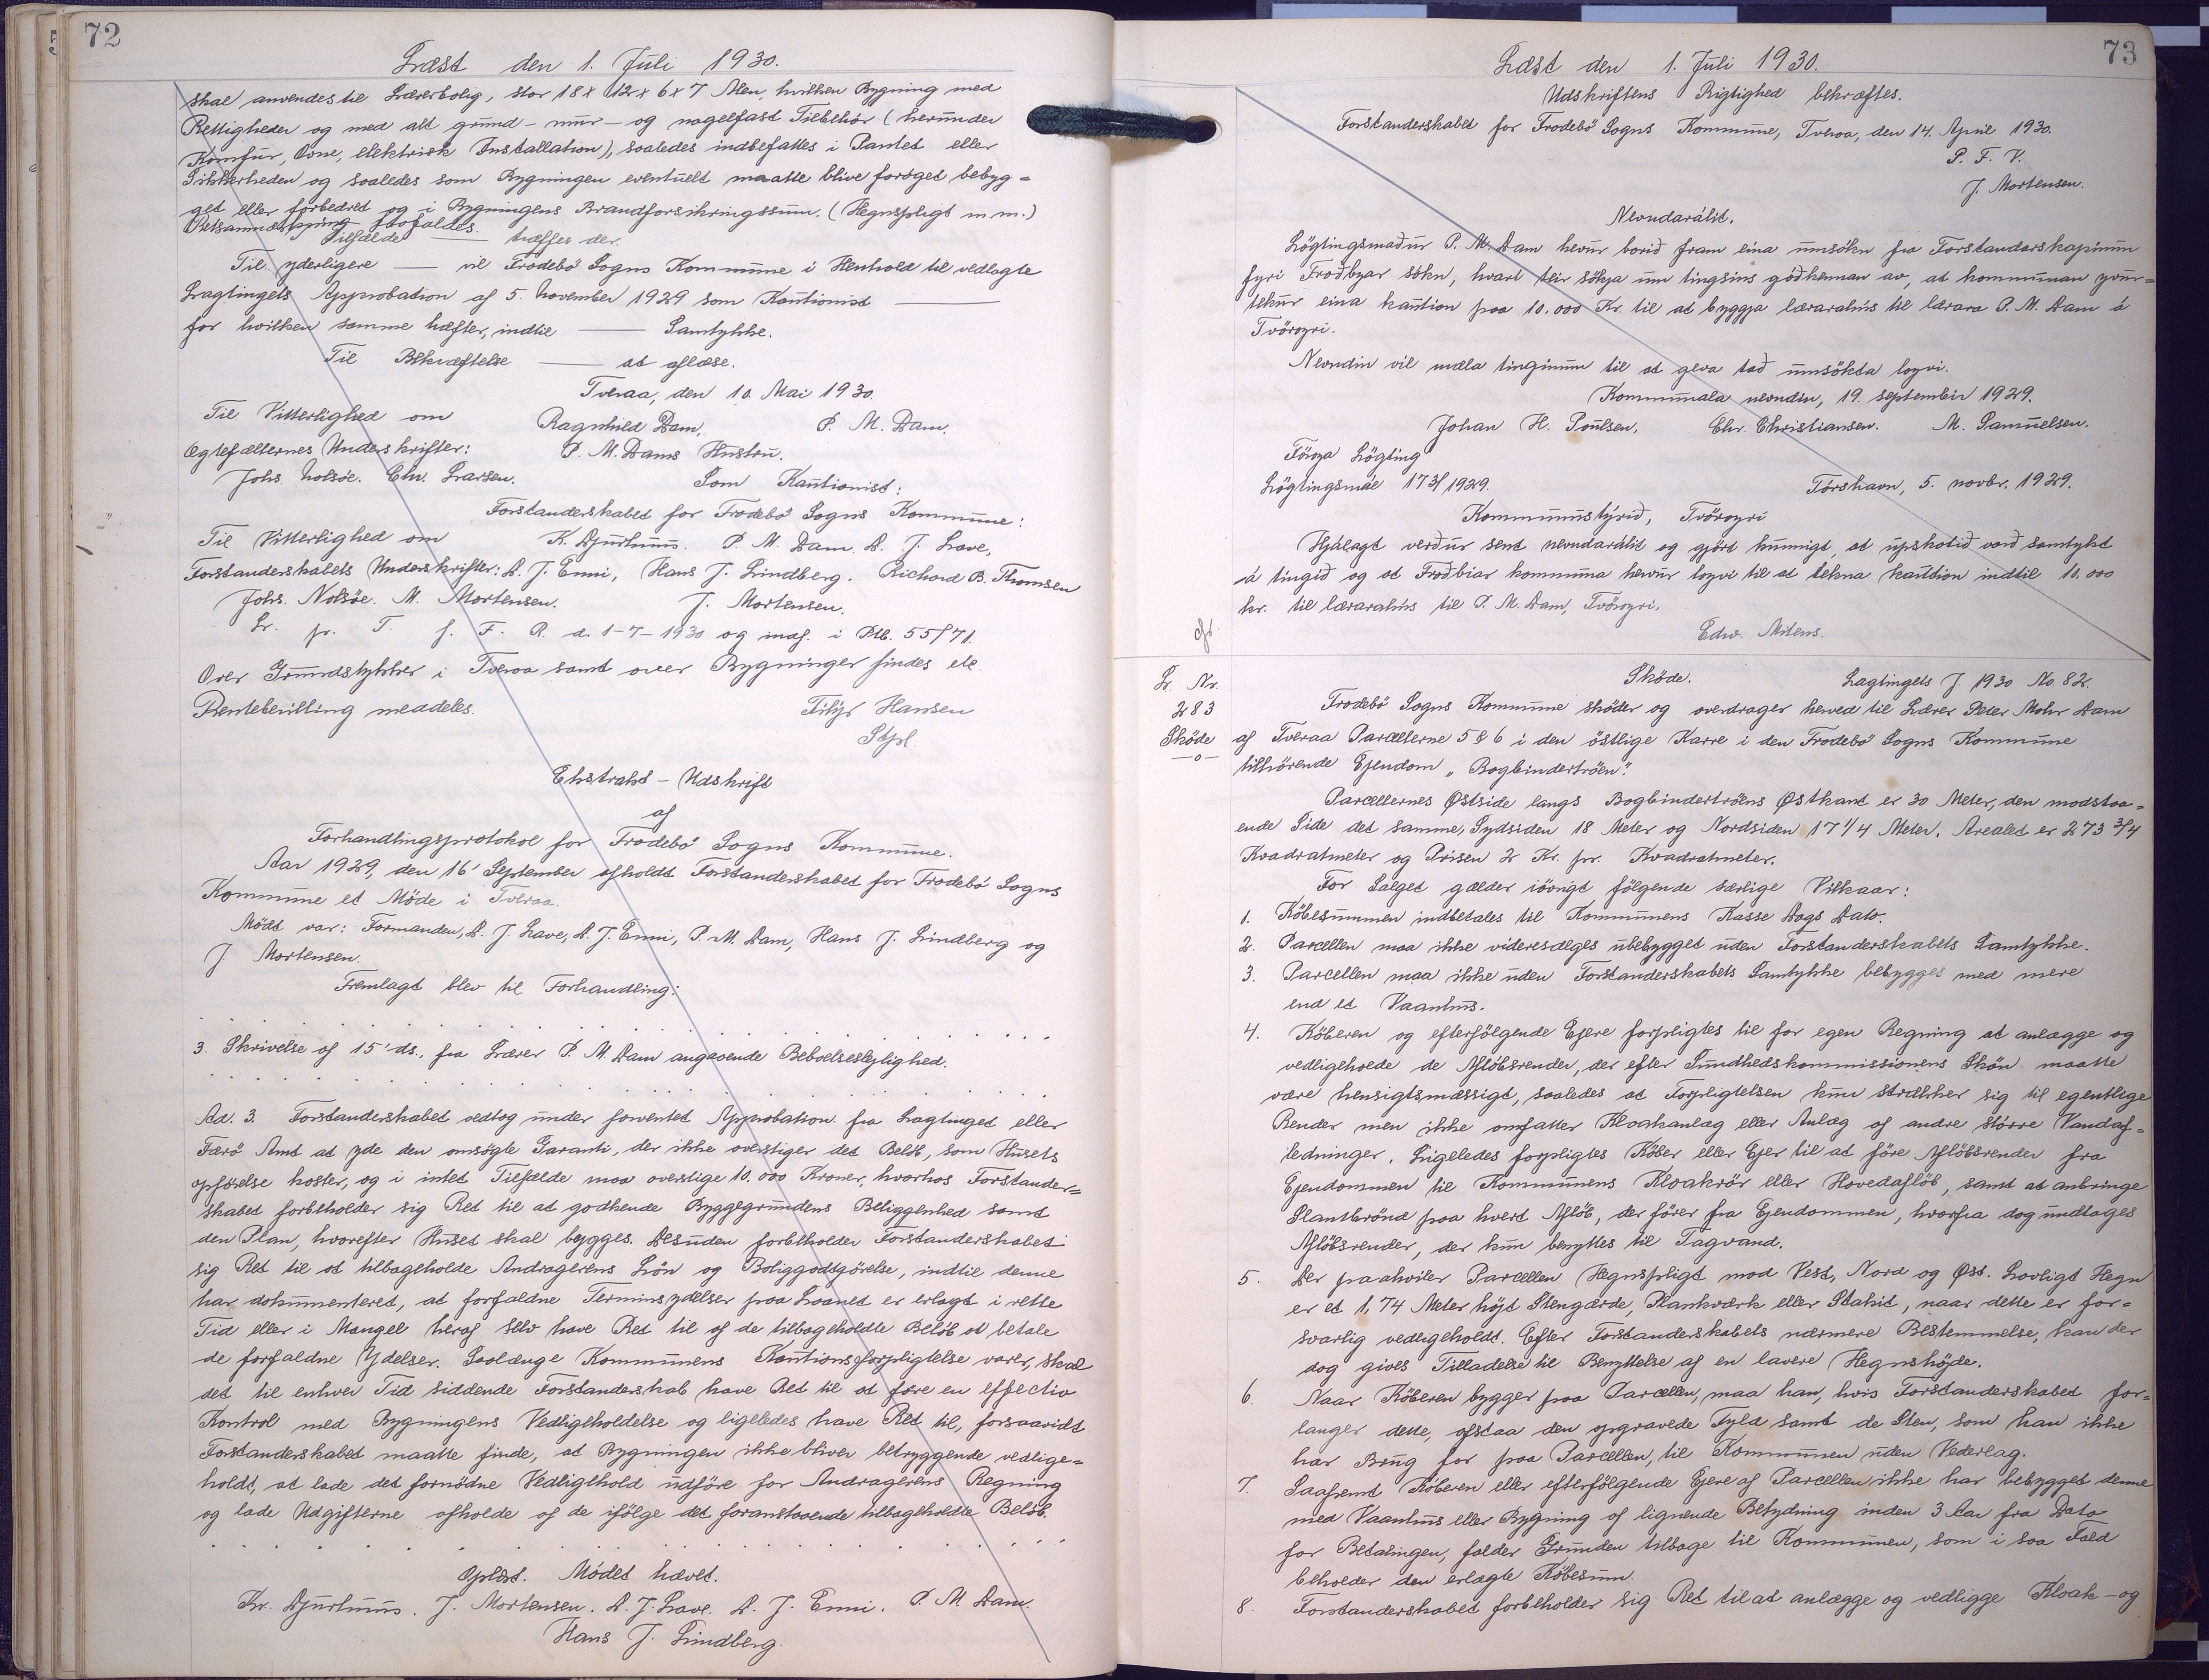 72
Læst den 1. Juli 1930.
skal anvendes til Lærerbolig, stor 18 x 12 x 6 x 7 Alen, hvilken Bygning med
Rettigheder og med alt grund - mur - og nagelfast Tilbehör (herunder
Komfur, Ovne, elektrisk Installation), saaledes indbefattes i Pantet eller
Sikkerheden og saaledes som Bygningen eventuelt maatte blive forøget bebyg=
get eller forbedret og i Bygningens Brandforsikringssum. (Hegnspligt m.m.)
Retsanmærkning frafaldes.
Tilfælde —— træffes der.
Til yderligere —— vil Frodebö Sogns Kommune i Henhold til vedlagte
Lagtingets Approbation af 5. November 1929 som Kautionist ——
for hvilken samme hæfter, indtil —— Samtykke.
Til Bekræftelse —— at aflæse.
Tveraa, den 10. Mai 1930.
Til Vitterlighed om Ragnhild Dam, P. M. Dam.
Ægtefællernes Underskrifter: P. M. Dams Hustru.
Johs. Nolsöe. Chr. Larsen. Som Kautionist:
Forstanderskabet for Frodebö Sogns Kommune:
Til Vitterlighed om K. Djurhuus. P. M. Dam. D. J. Lave,
Forstanderskabets Underskrifter: D. J. Enni, Hans J. Lindberg. Richard B. Thomsen
Johs. Nolsöe. M. Mortensen. J. Mortensen.
Lr. pr. T. f. F. R. d. 1-7-1930 og indf. i Ptb. 55/71.
Over Grundstykker i Tveraa samt over Bygninger findes etc.
Rentebevilling meddeles. Filip Hansen
Stpl.
Ekstrakt - Udskrift
af
Forhandlingsprotokol for Frodebö Sogns Kommune.
Aar 1929, den 16' September afholdt Forstanderskabet for Frodebö Sogns
Kommune et Möde i Tveraa.
Mödt var: Formanden, D. J. Lave, D. J. Enni, P. M. Dam, Hans J. Lindberg og
J. Mortensen.
Fremlagt blev til Forhandling:
3. Skrivelse af 15' ds., fra Lærer P. M. Dam angaaende Beboelseslejlighed.
Ad. 3. Forstanderskabet vedtog under forventet Approbation fra Lagtinget eller
Færö Amt at yde den omsögte Garanti, der ikke overstiger det Belöb, som Husets
opförelse koster, og i intet Tilfælde maa overstige 10.000 Kroner, hvorhos Forstander=
skabet forbeholder sig Ret til at godkende Byggegrundens Beliggenhed samt
den Plan, hvorefter Huset skal bygges. Desuden forbeholder Forstanderskabet
sig Ret til at tilbageholde Andragerens Lön og Boliggodtgörelse, indtil denne
har dokumenteret, at forfaldne Terminsydelser paa Laanet er erlagt i rette
Tid eller i Mangel heraf selv have Ret til af de tilbageholdte Belöb at betale
de forfaldne Ydelser. Saalænge Kommunens Kautionsforpligtelse varer, skal
det til enhver Tid siddende Forstanderskab have Ret til at före en effectiv
Kontrol med Bygningens Vedligeholdelse og ligeledes have Ret til, forsaavidt
Forstanderskabet maatte finde, at Bygningen ikke bliver betryggende vedlige=
holdt, at lade det fornödne Vedligehold udföre for Andragerens Regning
og lade Udgifterne afholde af de ifölge det foranstaaende tilbageholdte Belöb.
Oplæst. Mödet hævet.
Kr. Djurhuus. J. Mortensen. D. J. Lave. D. J. Enni. P. M. Dam.
Hans J. Lindberg.
73
Læst den 1. Juli 1930.
Udskriftens Rigtighed bekræftes.
Forstanderskabet for Frodebö Sogns Kommune, Tveraa, den 14. April 1930.
P. F. V.
J. Mortensen.
Nevndarálit.
Lögtingsmaður P. M. Dam hevur borið fram eina umsókn fra Forstanderskapinum
fyri Froðbyar sókn, hvart teir sökja um tingsins góðkennan av, at kommunan yvur=
tekur eina kaution paa 10.000 Kr. til at byggja lærarahús til lærara P. M. Dam á
Tvöroyri.
Nevndin vil mæla tinginum til at geva tað umsökta loyvi.
Kommunala nevndin, 19. september 1929.
Johan H. Poulsen, Chr. Christiansen. M. Samuelsen.
Föroya Lögting
Lögtingsmál 173/1929. Tórshavn, 5. novbr. 1929.
Kommunustýrið, Tvöroyri
Hjálagt verður sent nevndarálit og gjört kunnigt, at uppskotið varð samtykt
á tingið og at Froðbiar kommuna hevur loyvi til at tekna kaution indtil 10.000
kr. til lærarahús til P. M. Dam, Tvöroyri.
Edw. Mitens.
Sköde. Lagtingets J. 1930 No. 82.
Lr. Nr.
283
Sköde
—o—
Frodebö Sogns Kommune sköder og overdrager herved til Lærer Peter Mohr Dam
af Tveraa Parcellerne 5 & 6 i den östlige Karre i den Frodebö Sogns Kommune
tilhörende Ejendom „Bogbindertröen".
Parcellernes Østside langs Bogbindertröens Østkant er 30 Meter, den modstaa=
ende Side det samme, Sydsiden 18 Meter og Nordsiden 17 1/4 Meter. Arealet er 273 3/4
Kvadratmeter og Prisen 2 Kr. pr. Kvadratmeter.
For Salget gælder iövrigt fölgende særlige Vilkaar:
1. Köbesummen indbetales til Kommunens Kasse Dags Dato.
2. Parcellen maa ikke videresælges ubebygget uden Forstanderskabets Samtykke.
3. Parcellen maa ikke uden Forstanderskabets Samtykke bebygges med mere
end et Vaanhus.
4. Köberen og efterfölgende Ejere forpligtes til for egen Regning at anlægge og
vedligeholde de Aflöbsrender, der efter Sundhedskommissionens Skön maatte
være hensigtsmæssigt, saaledes at Forpligtelsen kun strækker sig til egentlige
Render men ikke omfatter Kloakanlæg eller Anlæg af andre större Vandaf=
ledninger. Ligeledes forpligtes Köber eller Ejer til at före Aflöbsrender fra
Ejendommen til Kommunens Kloakrör eller Hovedaflöb, samt at anbringe
Slambrönd paa hvert Aflöb, der förer fra Ejendommen, hvorfra dog undtages
Aflöbsrender, der kun benyttes til Tagvand.
5. Der paahviler Parcellen Hegnspligt mod Vest, Nord og Øst. Lovligt Hegn
er et 1,74 Meter höjt Stengærde, Plankværk eller Stakit, naar dette er for=
svarlig vedligeholdt. Efter Forstanderskabets nærmere Bestemmelse, kan der
dog gives Tilladelse til Benyttelse af en lavere Hegnshöjde.
6. Naar Köberen bygger paa Parcellen, maa han, hvis Forstanderskabet for=
langer dette, afstaa den opgravede Fyld samt de Sten, som han ikke
har Brug for paa Parcellen, til Kommunen uden Vederlag.
7. Saafremt Köberen eller efterfölgende Ejere af Parcellen ikke har bebygget denne
med Vaanhus eller Bygning af lignende Betydning inden 3 Aar fra Dato
for Betalingen, falder Grunden tilbage til Kommunen, som i saa Fald
beholder den erlagte Köbesum.
8. Forstanderskabet forbeholder sig Ret til at anlægge og vedligge Kloak - og